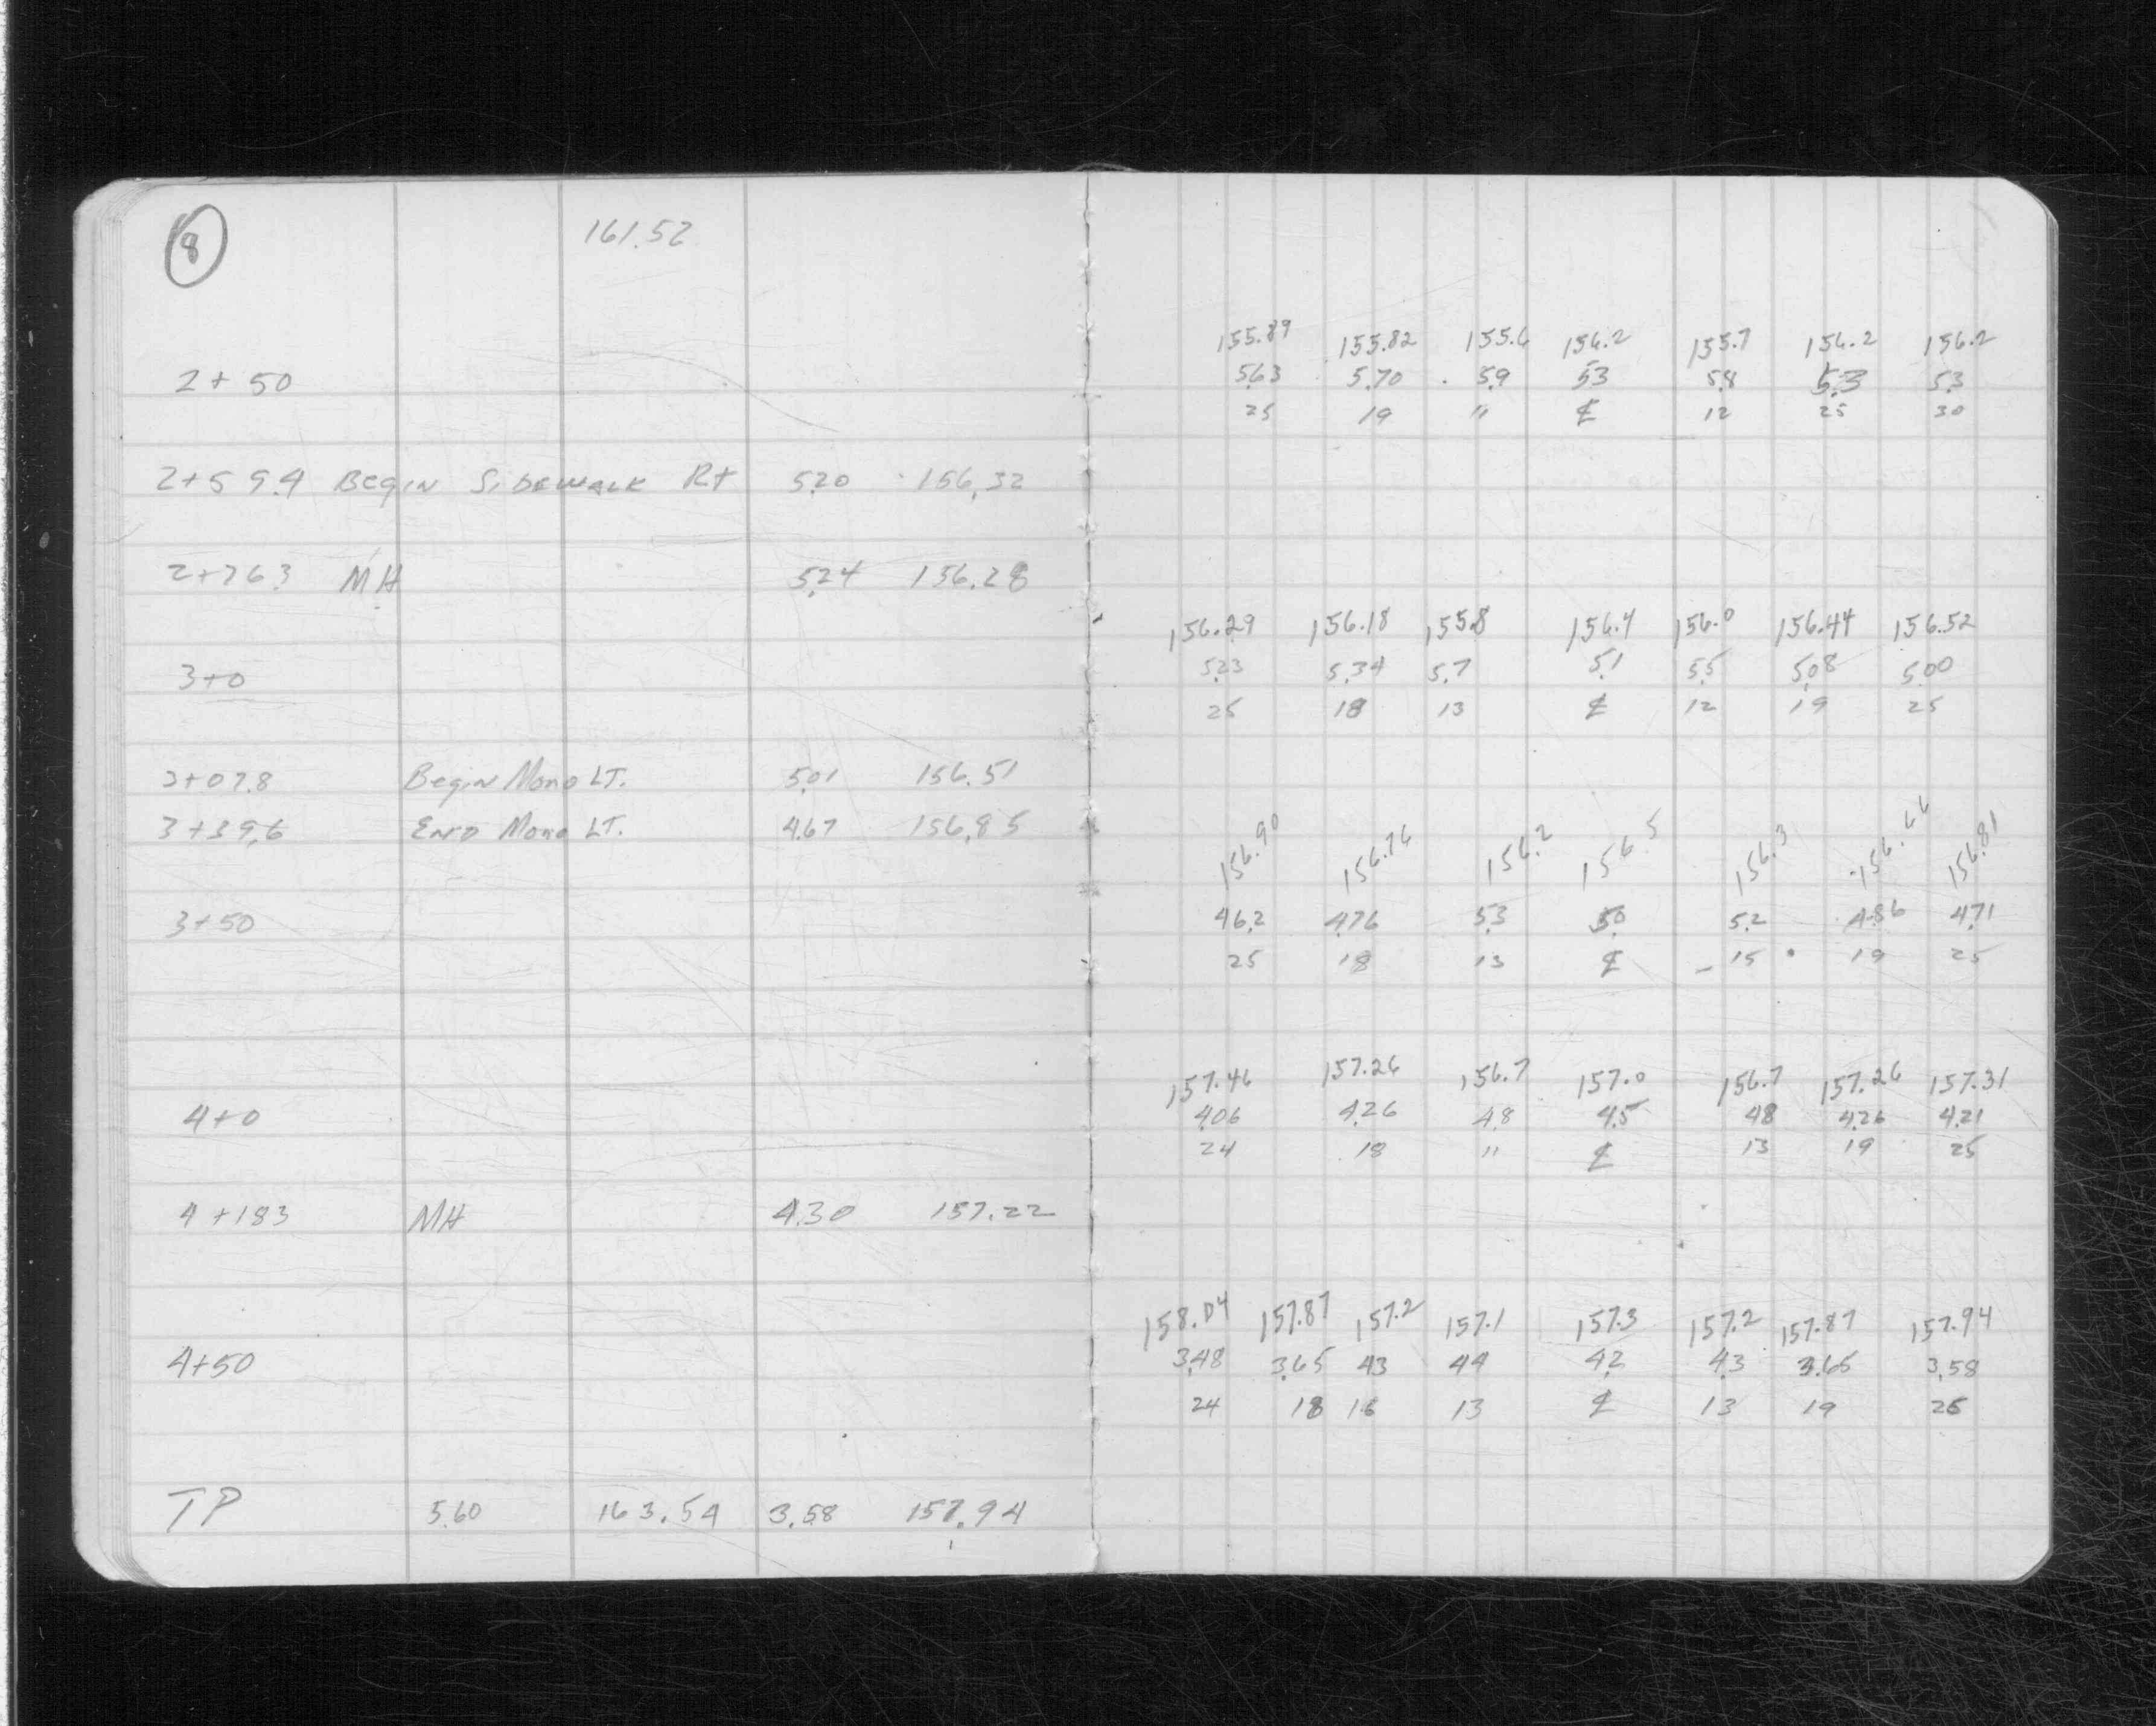 8 161.52
155.89 155.82 155.6 156.2 155.7 156.2 156.2
2+50 5.63 5.70 5.9 5.3 5.8 5.3 5.3
25 19 11 ℄ 12 25 30
2+59.4 Begin Sidewalk Rt 5.20 156.32
2+76.3 MH 5.24 156.28
156.29 156.18 155.8 156.4 156.0 156.44 156.52
3+0 5.23 5.34 5.7 5.1 5.5 5.08 5.00
25 18 13 ℄ 12 19 25
3+07.8 Begin Mono LT. 5.01 156.51
3+39.6 End Mono LT. 4.67 156.85
156.90 156.76 156.2 156.5 156.3 156.66 156.81
3+50 46.2 4.76 5.3 5.0 5.2 4.86 4.71
25 18 13 ℄ 15 19 25
157.46 157.26 156.7 157.0 156.7 157.26 157.31
4+0 4.06 4.26 4.8 4.5 4.8 4.26 4.21
24 18 11 ℄ 13 19 25
4+183 MH 4.30 157.22
158.04 157.87 157.2 157.1 157.3 157.2 157.87 157.94
4+50 3.48 3.65 4.3 4.4 4.2 4.3 3.65 3.58
24 18 16 13 ℄ 13 19 25
TP 5.60 163.54 3.58 157.94